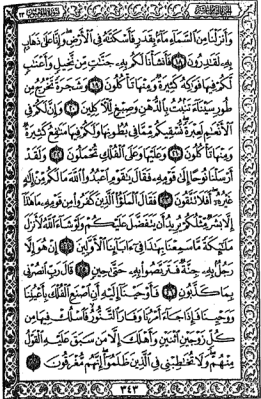 وَأَنزَلْنَا مِنَ ٱلسَّمَآءِ مَآءًۢ بِقَدَرٍ فَأَسْكَنَّٰهُ فِي ٱلْأَرْضِ وَإِنَّا عَلَىٰ ذَهَابٍۭ
بِهِۦ لَقَٰدِرُونَ ١٨ فَأَنشَأْنَا لَكُم بِهِۦ جَنَّٰتٍ مِّن نَّخِيلٍ وَأَعْنَٰبٍ
لَّكُمْ فِيهَا فَوَٰكِهُ كَثِيرَةٌ وَمِنْهَا تَأْكُلُونَ ١٩ وَشَجَرَةً تَخْرُجُ مِن
طُورِ سَيْنَآءَ تَنۢبُتُ بِٱلدُّهْنِ وَصِبْغٍ لِّلْآكِلِينَ ٢٠ وَإِنَّ لَكُمْ فِي
ٱلْأَنْعَٰمِ لَعِبْرَةً نُّسْقِيكُم مِّمَّا فِي بُطُونِهَا وَلَكُمْ فِيهَا مَنَٰفِعُ كَثِيرَةٌ
وَمِنْهَا تَأْكُلُونَ ٢١ وَعَلَيْهَا وَعَلَى ٱلْفُلْكِ تُحْمَلُونَ ٢٢ وَلَقَدْ
أَرْسَلْنَا نُوحًا إِلَىٰ قَوْمِهِۦ فَقَالَ يَٰقَوْمِ ٱعْبُدُوا۟ ٱللَّهَ مَا لَكُم مِّنْ إِلَٰهٍ
غَيْرُهُۥٓ أَفَلَا تَتَّقُونَ ٢٣ فَقَالَ ٱلْمَلَؤُا۟ ٱلَّذِينَ كَفَرُوا۟ مِن قَوْمِهِۦ مَا هَٰذَآ
إِلَّا بَشَرٌ مِّثْلُكُمْ يُرِيدُ أَن يَتَفَضَّلَ عَلَيْكُمْ وَلَوْ شَآءَ ٱللَّهُ لَأَنزَلَ
مَلَٰٓئِكَةً مَّا سَمِعْنَا بِهَٰذَا فِيٓ ءَابَآئِنَا ٱلْأَوَّلِينَ ٢٤ إِنْ هُوَ إِلَّا
رَجُلٌۢ بِهِۦ جِنَّةٌ فَتَرَبَّصُوا۟ بِهِۦ حَتَّىٰ حِينٍ ٢٥ قَالَ رَبِّ ٱنصُرْنِي
بِمَا كَذَّبُونِ ٢٦ فَأَوْحَيْنَآ إِلَيْهِ أَنِ ٱصْنَعِ ٱلْفُلْكَ بِأَعْيُنِنَا
وَوَحْيِنَا فَإِذَا جَآءَ أَمْرُنَا وَفَارَ ٱلتَّنُّورُ فَٱسْلُكْ فِيهَا مِن
كُلٍّ زَوْجَيْنِ ٱثْنَيْنِ وَأَهْلَكَ إِلَّا مَن سَبَقَ عَلَيْهِ ٱلْقَوْلُ
مِنْهُمْ وَلَا تُخَٰطِبْنِي فِي ٱلَّذِينَ ظَلَمُوٓا۟ إِنَّهُم مُّغْرَقُونَ ٢٧
٣٤٣